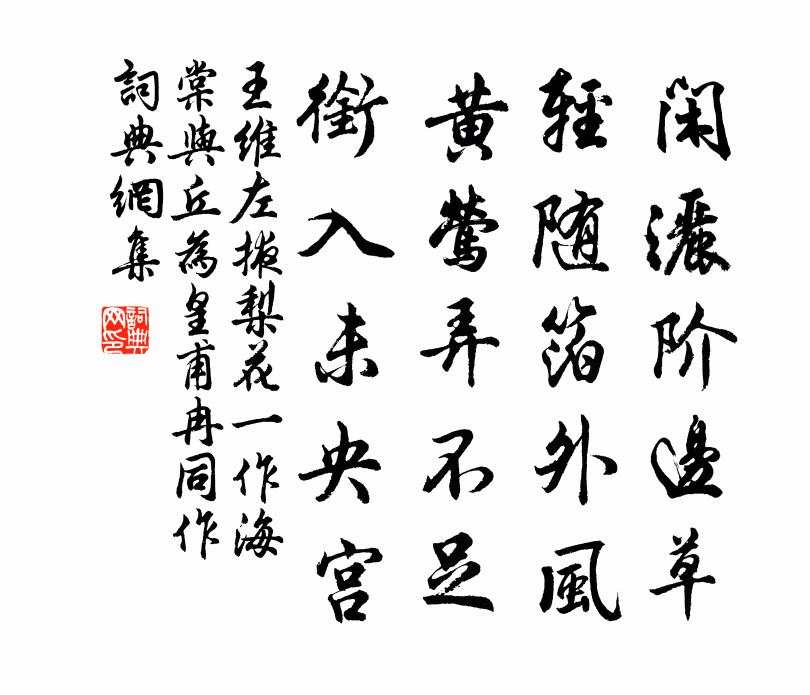 闲灑阶邊草
輕随箔外風
黄鶯弄不足
銜入未央宫
王維左掖梨花一作海
棠與丘為皇甫冉同作
詞典網集
詞典网印